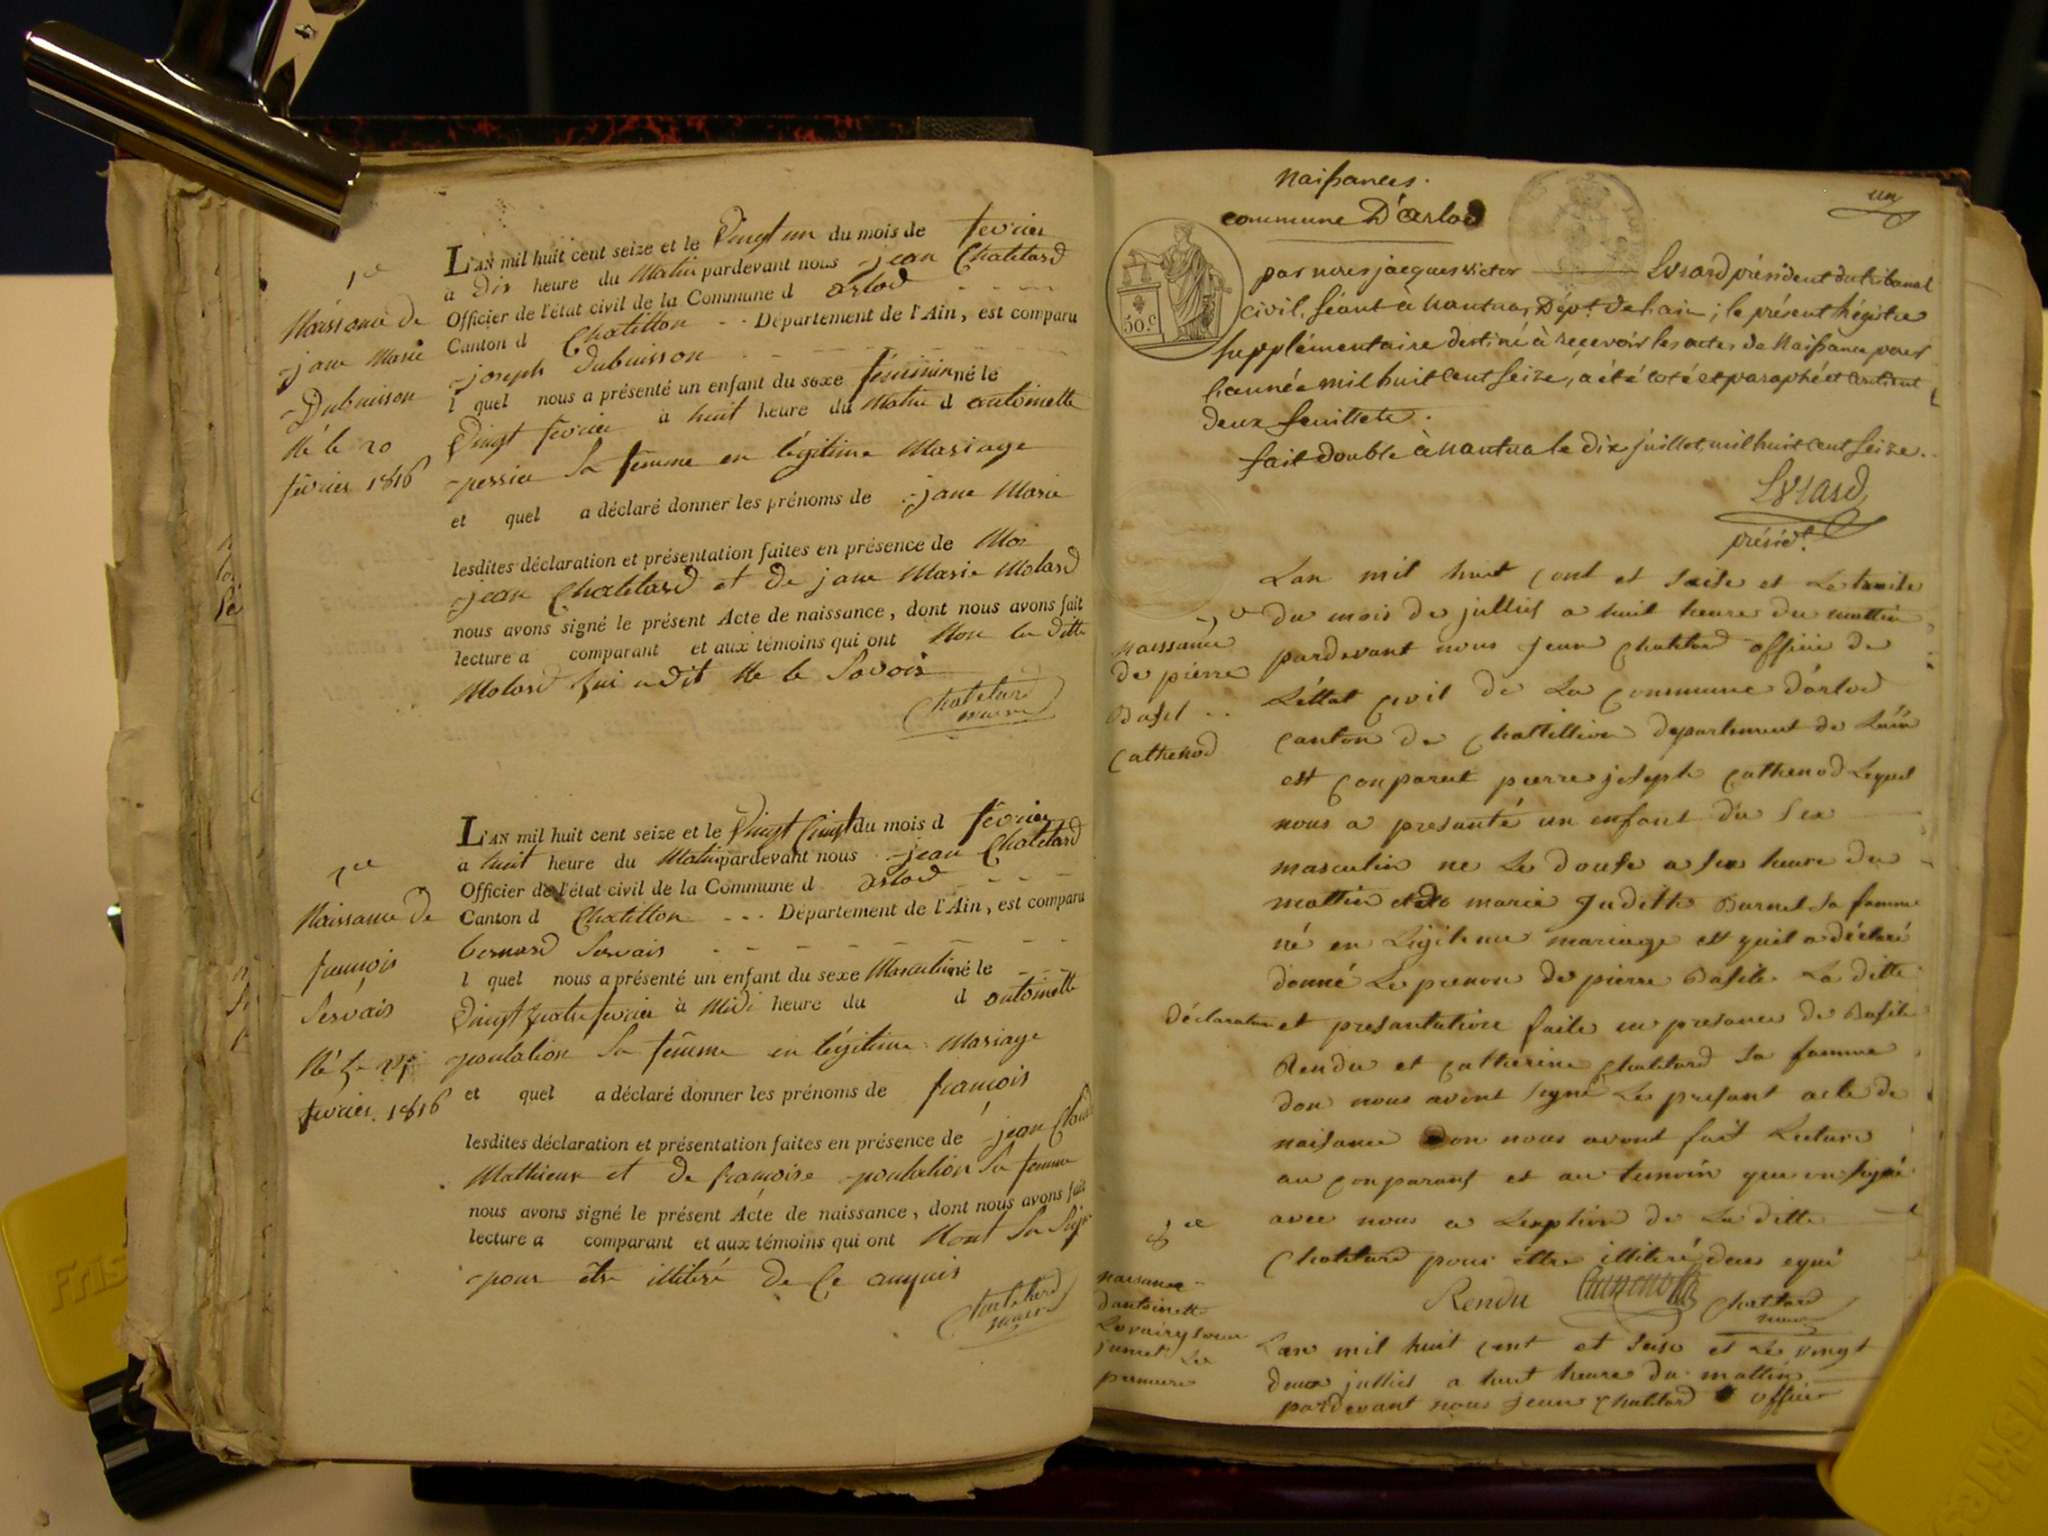 1e
Naissance de
jane Marie
Dubuisson
Né le 20
fevrier 1816
L'AN mil huit cent seize et le Vingt un du mois de fevrier
a Dix heure du Matin pardevant nous jean Chatelard
Officier de l'état civil de la Commune d arlod
Canton d Chatillon Département de l'Ain, est comparu
joseph Dubuisson
l quel nous a présenté un enfant du sexe féminin né le
Vingt fevrier a huit heure du Matin d antoinette
perrier Sa femme en légitime Mariage
et quel a déclaré donner les prénoms de jane Marie
lesdites déclaration et présentation faites en présence de Moi
jean Chatelard et de jane Marie Molard
nous avons signé le présent Acte de naissance, dont nous avons fait
lecture a comparant et aux témoins qui ont Non la ditte
Molard qui a dit Ne le Savoir
Chatelard
maire
Naissance de
françois
Servais
Né le
fevrier 1816
L'AN mil huit cent seize et le Vingt Cinq du mois d fevrier
a huit heure du Matin pardevant nous jean Chatelard
Officier de l'état civil de la Commune d arlod
Canton d Chatillon Département de l'Ain, est comparu
bernard Servais
l quel nous a présenté un enfant du sexe Masculin né le
Vingt quatre fevrier à Midi heure du d antoinette
poulation Sa femme en légitime Mariage
et quel a déclaré donner les prénoms de françois
lesdites déclaration et présentation faites en présence de jean Claude
Mathieux et de françoise poulation Sa femme
nous avons signé le présent Acte de naissance, dont nous avons fait
lecture a comparant et aux témoins qui ont Nont Su Signé
pour être illitéré de Ce anquis
Chatelard
maire
Naissances.
commune D'arlod
un
50 c.
par nous jacques victor Evrard président du tribunal
civil, séant à Nantua, Dépt. de l'ain; le présent Régistre
supplémentaire destiné à recevoir les actes de Naissance pour
l'année mil huit cent seize, a été coté et paraphé et contient
deux feuillets.
fait double à Nantua le dix juillet mil huit cent seize.
Evrard
présidt.
Naissance
de pierre
Basil
Cathenod
Lan mil huit cent et seise et le treise
du mois de julliet a huit heure du mattin
pardevant nous jean Chatelard officié de
L'éttat civil de La Commune d'arlod
canton de Chattillion departement de Lain
est conparut pierre joseph Cathenod Lequel
nous a presanté un enfant du sex
masculin ne Le douse a six heure du
mattin et de marie Juditte Burnel sa famme
né en Légitime mariage est quil a déclaré
donné Le prenon de pierre Basile La ditte
déclaration et presantation faite en presance de Basile
Rendu et Catherine Chatelard sa famme
don nous avont signé Le presant acte de
naisance don nous avont fait Lecture
au conparant et au temoin qui on signé
avec nous a Lexption de La ditte
Chatelard pour éttre illitéré
Rendu
Chatelard
maire
naisance
dantoinette
jumel La
premiere
Lan mil huit cent et seise et Le vingt
deux julliet a huit heure du mattin
pardevant nous jean Chatelard officié